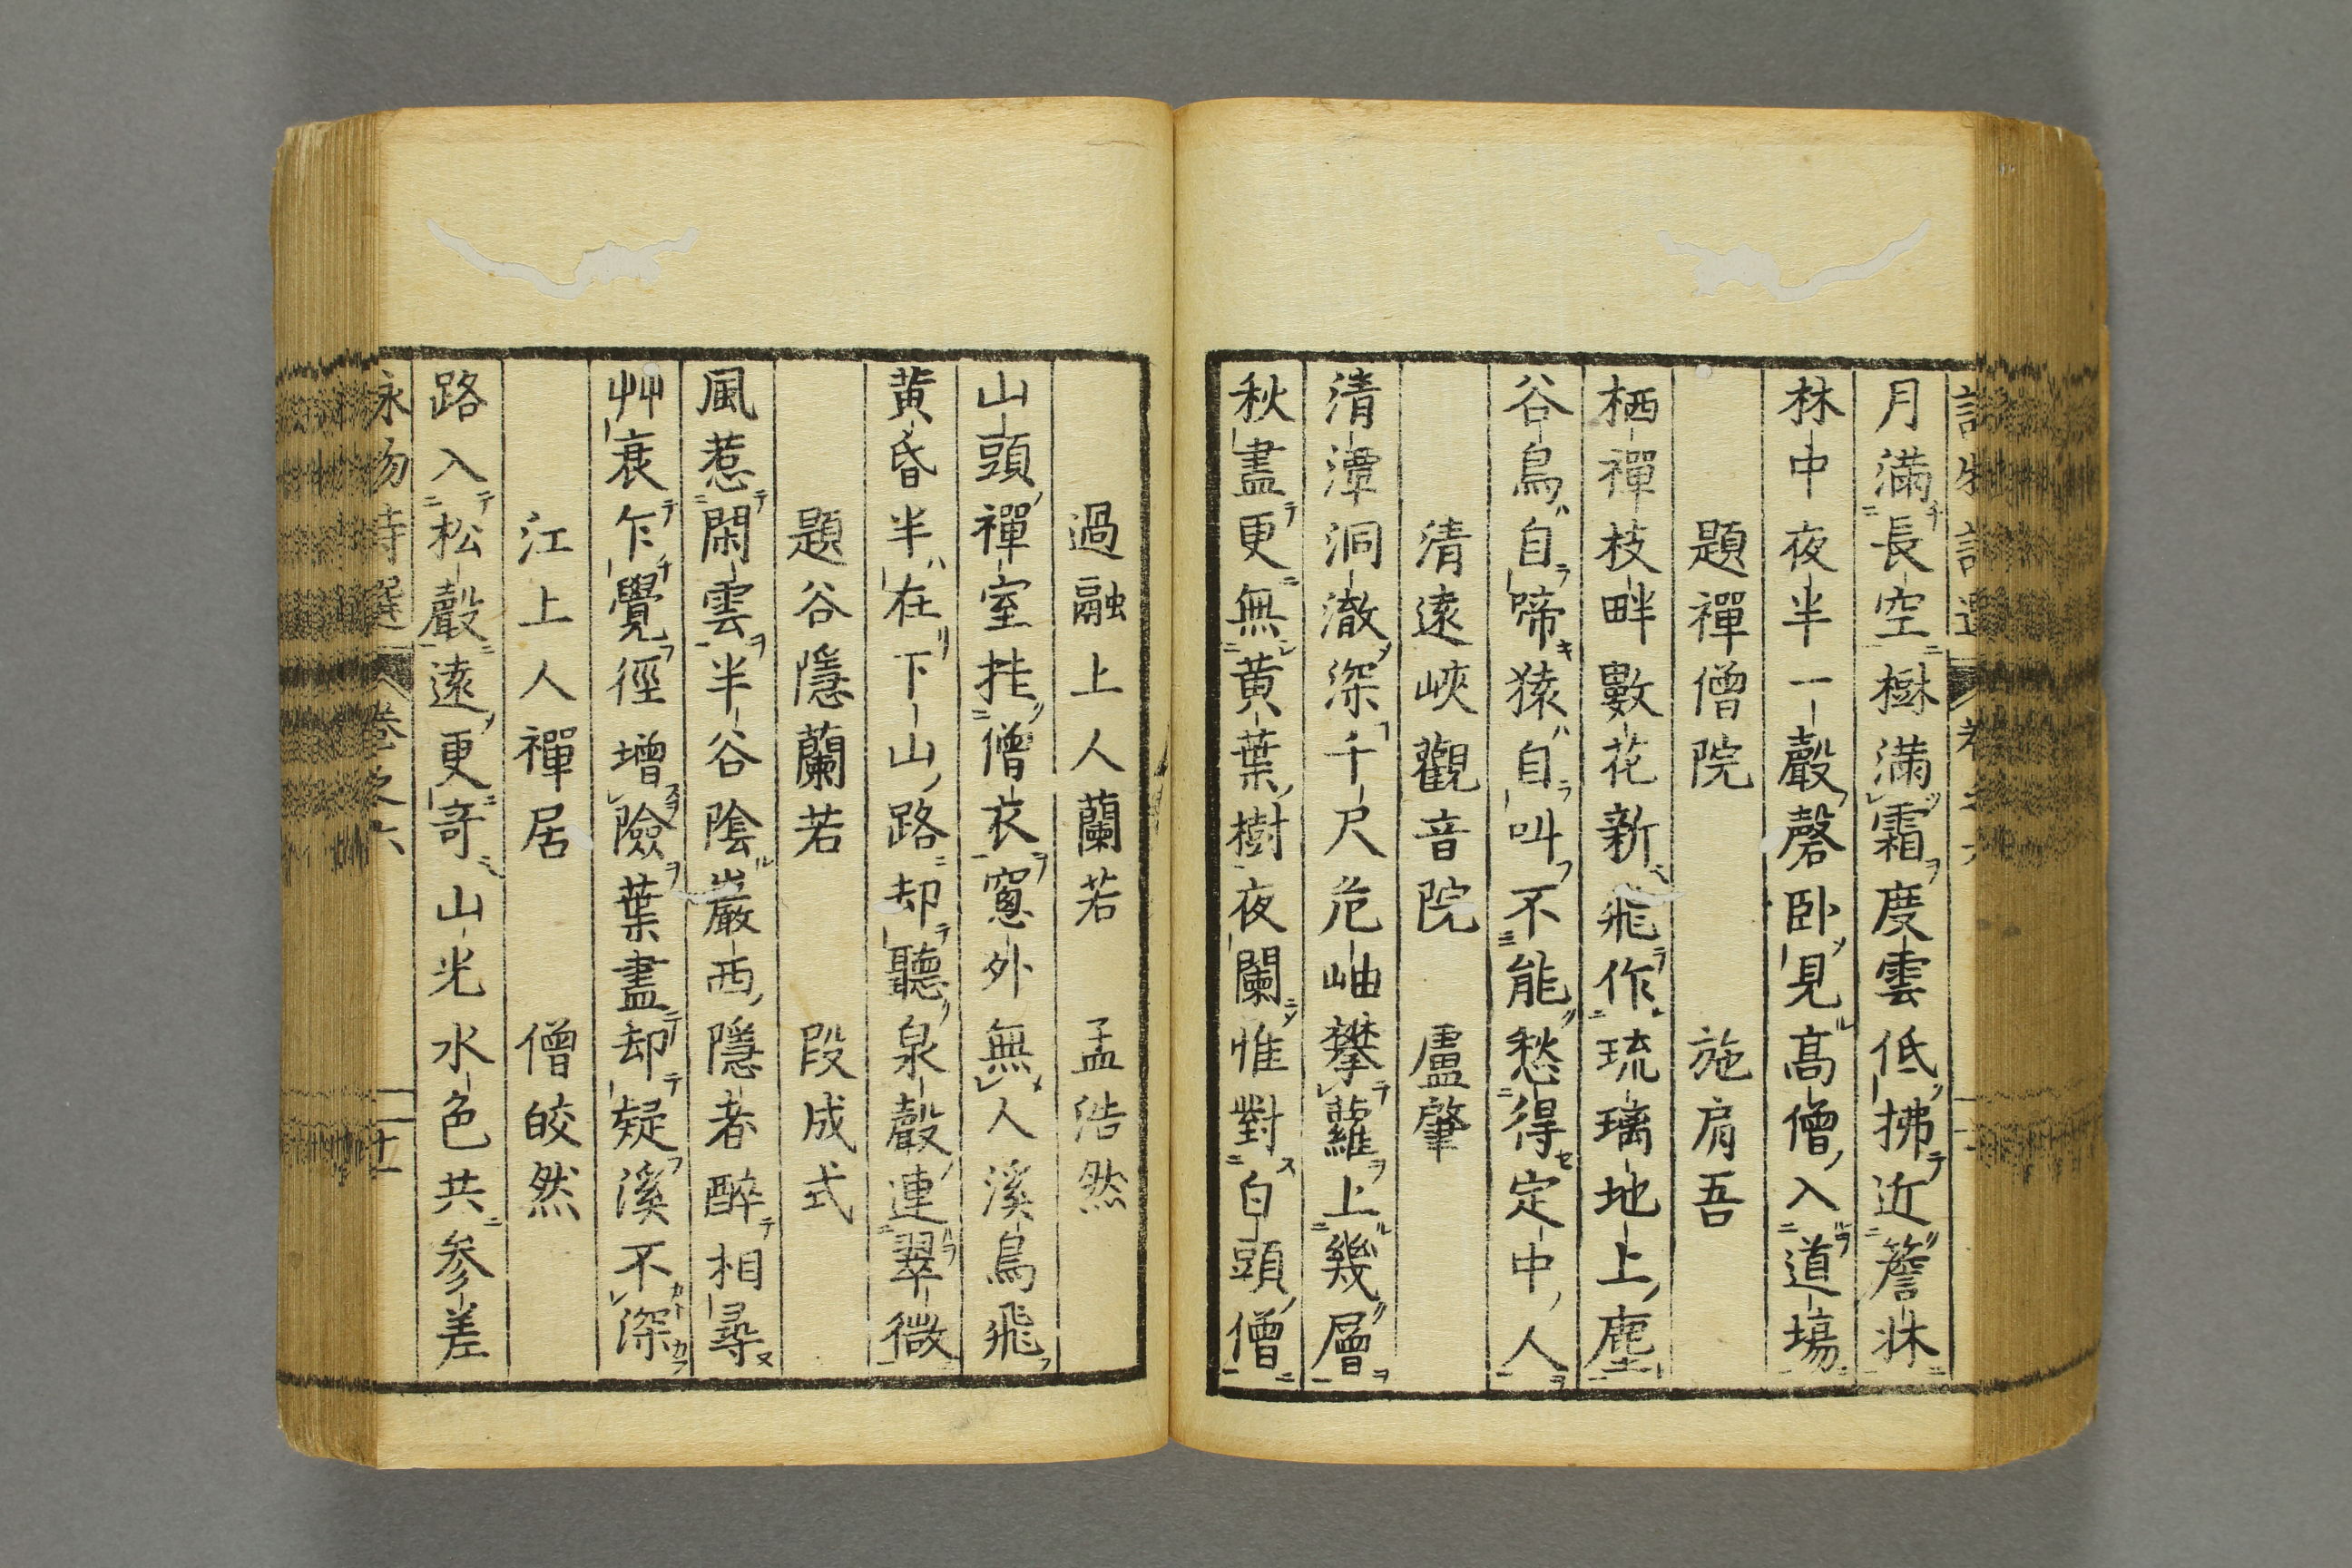 月滿長空樹滿霜度雲低拂近簷牀
林中夜半一聲磬卧見高僧入道場
題禪僧院 施肩吾
栖禪枝畔數花新飛作琉璃地上塵
谷鳥自啼猿自叫不能愁得定中人
清遠峽觀音院 盧肇
清潭洞澈深千尺危岫攀蘿上幾層
秋盡更無黄葉樹夜闌惟對白頭僧
過融上人蘭若 孟浩然
山頭禪室挂僧衣窻外無人溪鳥飛
黄昏半在下山路却聽泉聲連翠微
題谷隱蘭若 段成式
風惹閑雲半谷陰巖西隱者醉相尋
艸衰乍覺徑增險葉盡却疑溪不深
江上人禪居 僧皎然
路入松聲遠更奇山光水色共参差
詠物詩選 卷之六